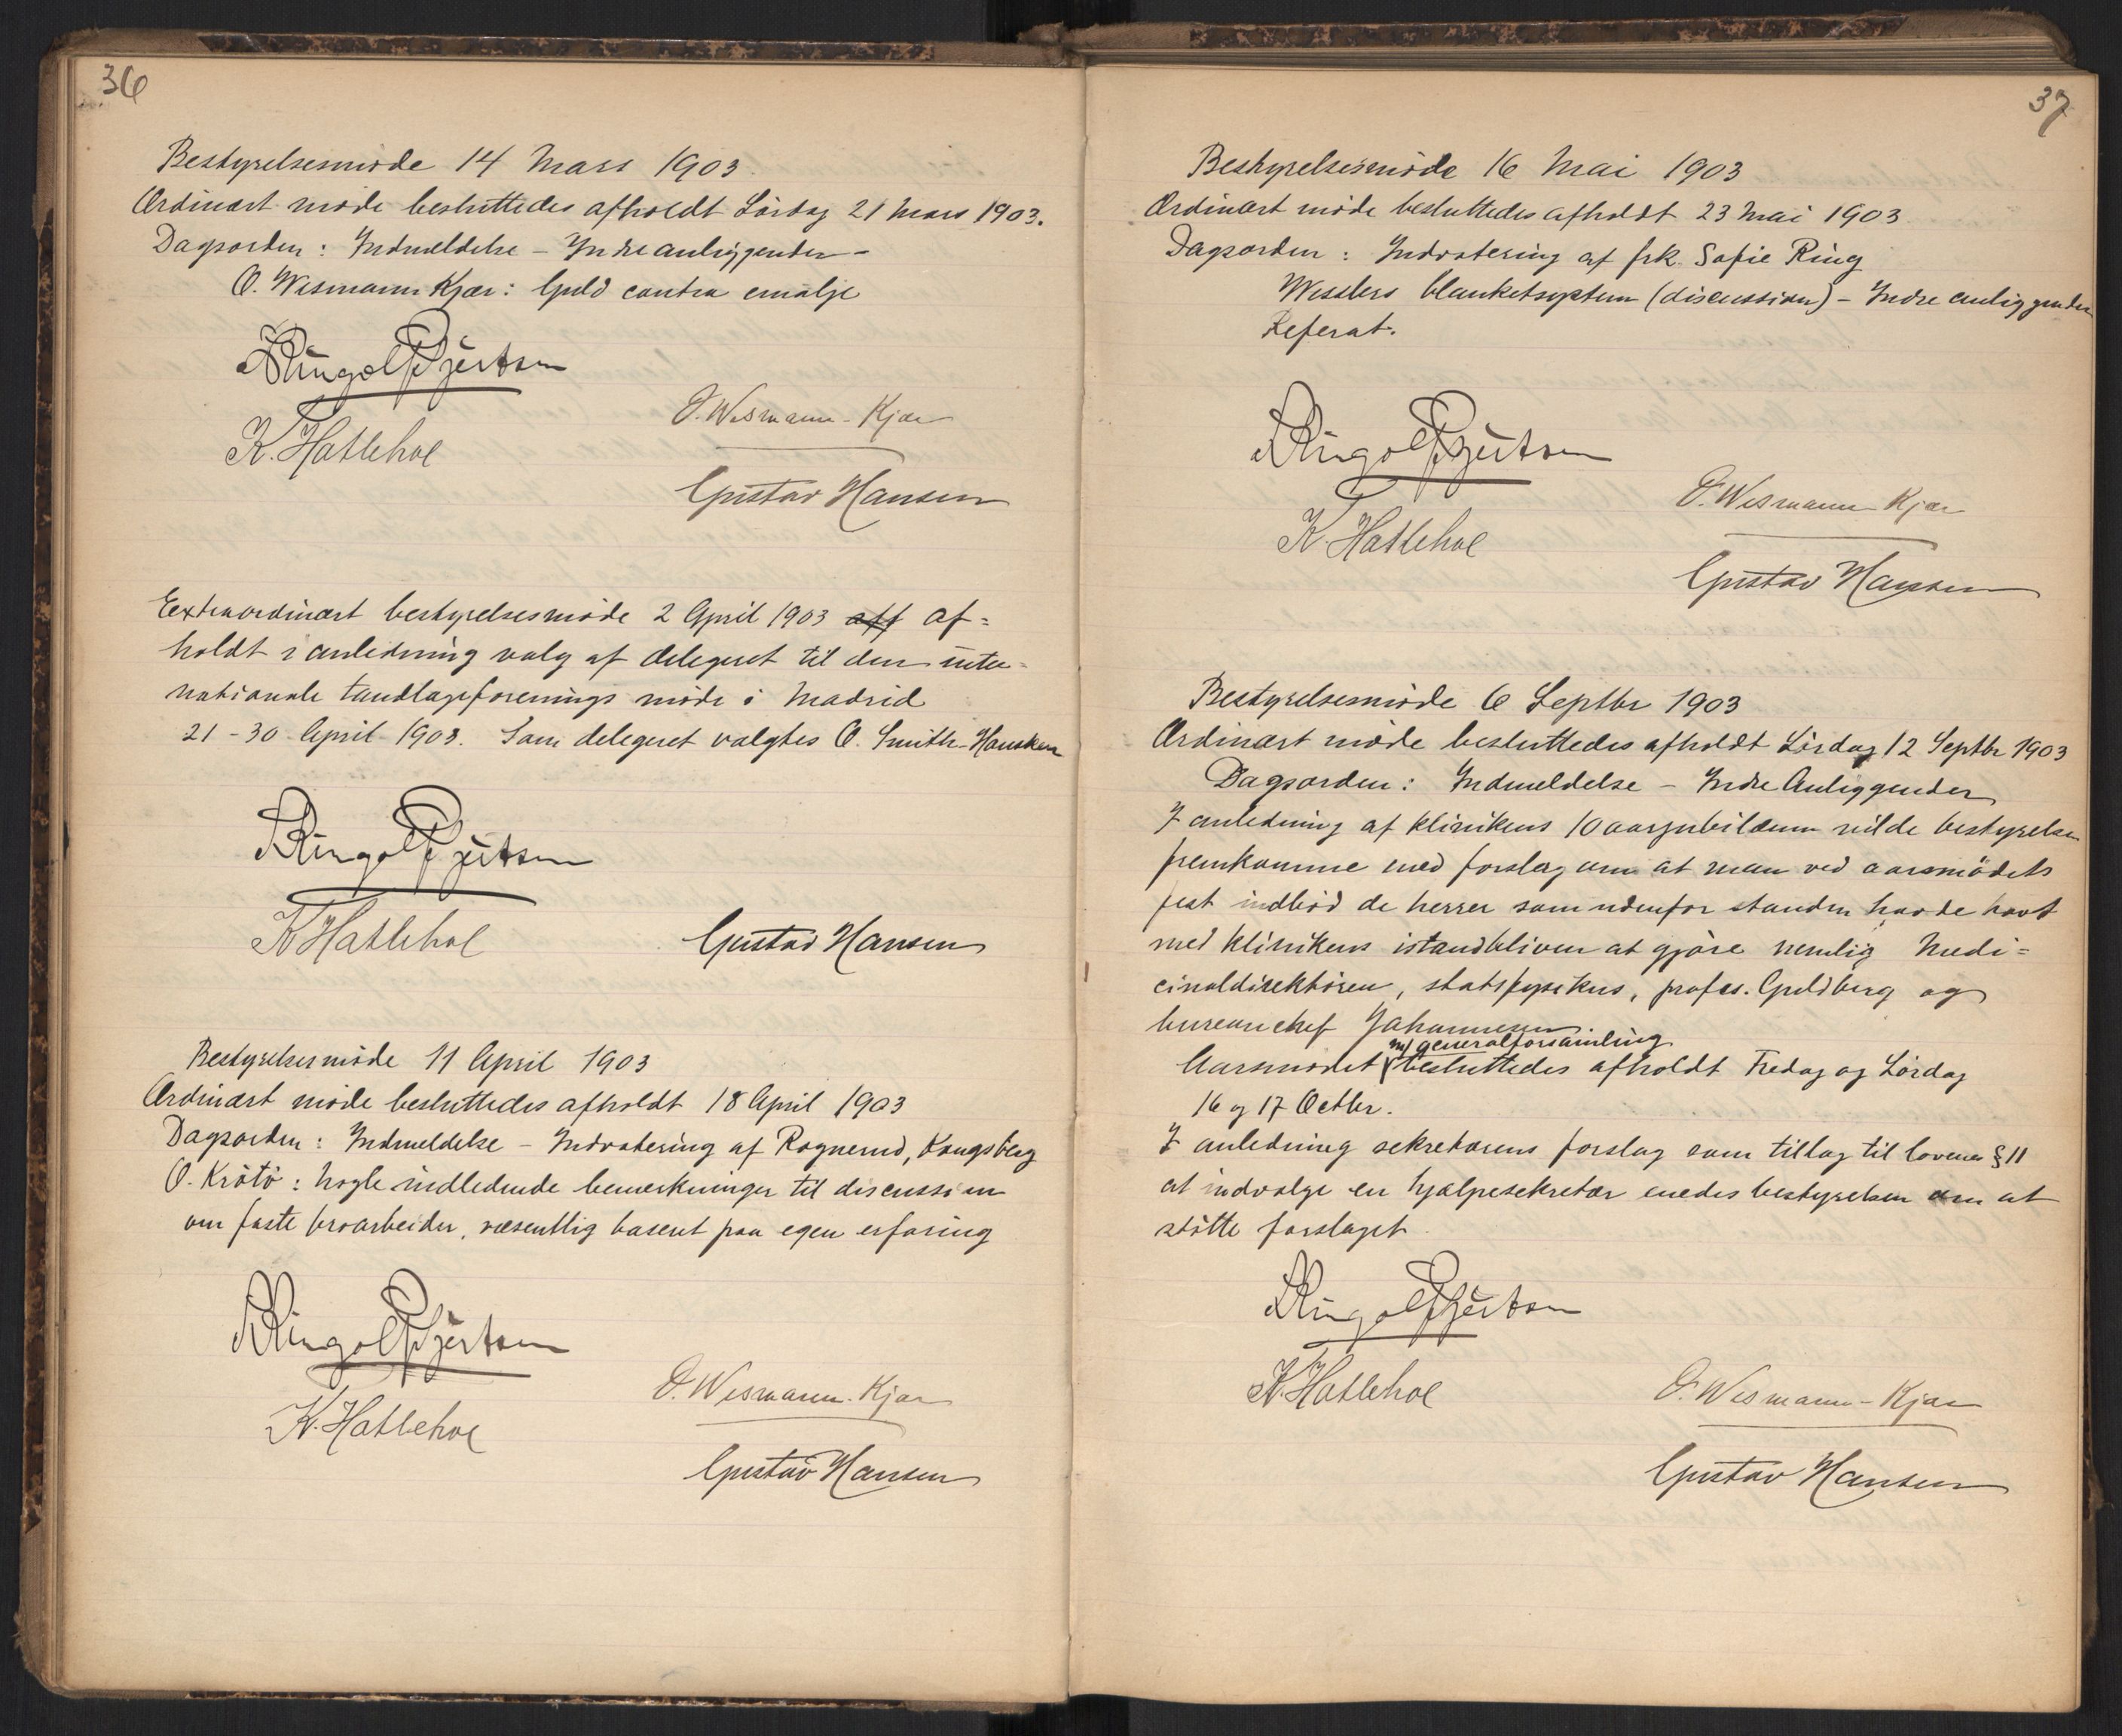 36
Bestyrelsesmøde 14 Mars 1903.
Ordinært møde besluttedes afholdt Lördag 21 Mars 1903.
Dagsorden: Indmeldelse – Indre anliggender –
O. Wismann Kjær: Guld contra emalje
Ringolf Gjertsen
K. Hatlehol
O. Wismann-Kjær
Gustav Hansen
Extraordinært bestyrelsesmöde 2 April 1903 aff af=
holdt i anledning valg af delegeret til den inter=
nationale tandlægeforenings möde i Madrid
21-30 April 1903. Som delegeret valgtes O. Smith-Housken
K Hatlehol
Gustav Hansen
Bestyrelsesmöde 11 April 1903
Ordinært möde besluttedes afholdt 18 April 1903
Dagsorden: Indmeldelse – Indvotering af Rognerud, Kongsberg
O. Krötö: Nogle indledende bemerkninger til discussion
om faste broarbeider, væsentlig baseret paa egen erfaring
K. Hatlehol
O. Wismann-Kjær
Gustav Hansen
37
Bestyrelsesmöde 16 Mai 1903
Ordinært möde besluttedes afholdt 23 Mai 1903
Dagsorden: Indvotering af frk. Sofie Ring
Wesslers blanketsystem (discussion) – Indre anliggender
Referat.
K. Hatlehol
O. Wismann-Kjær
Gustav Hansen
Bestyrelsesmöde 6 Septbr 1903
Ordinært möde besluttedes afholdt Lördag 12 Septbr 1903
Dagsorden: Indmeldelse – Indre Anliggender
I anledning af klinikens 10 aarsjubilæum vilde bestyrelsen
fremkomme med forslag om at man ved aarsmödets
fest indböd de herrer som udenfor standen havde havt
med klinikens istandbliven at gjöre nemlig Medi=
cinaldirektören, statsfysikus, profes. Guldberg og
bureauchef Johannesen.
Aarsmödet m/generalforsamling besluttedes afholdt Fredag og Lördag
16 og 17 Octbr.
I anledning sekretærens forslag som tillæg til lovenes § 11
at indvælge en hjælpesekretær enedes bestyrelsen om at
stötte forslaget.
K. Hatlehol
O. Wismann-Kjær
Gustav Hansen